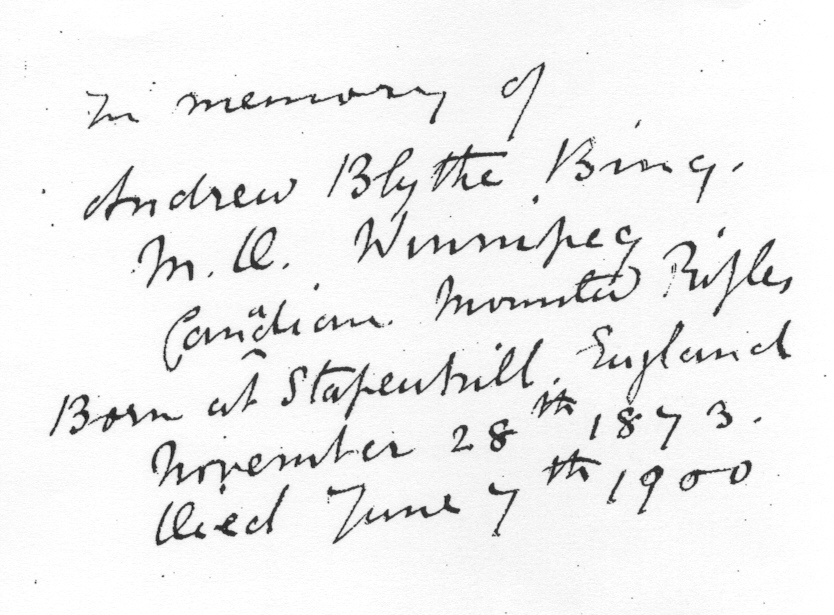 In memory of
Andrew Blythe Bing.
M.D. Winnipeg
Canadian Mounted Rifles
Born at Stapenhill, England
November 28th 1873.
Died June 7th 1900